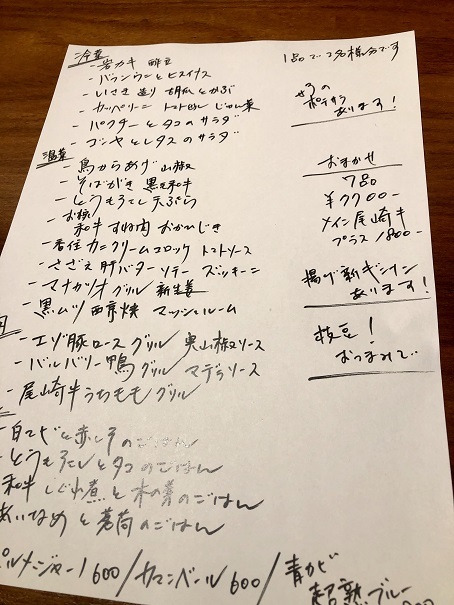 冷菜
- 岩カキ 酢豆
- いさき 造り 胡瓜とかぶ
- カッペリーニ トマト じゅん菜
- パクチーとタコのサラダ
- ゴーヤとレタスのサラダ
温菜
- 鳥からあげ 山椒
- そばがき 黒毛和牛
- とうもろこし 天ぷら
- お椀
和牛 すね肉 おかひじき
- 香住カニクリームコロッケ トマトソース
- さざえ肝バターソテー ズッキーニ
- マナガツオ グリル 新生姜
- 黒ムツ 西京焼 マッシュルーム
- エゾ豚ロース グリル 実山椒ソース
- バルバリー鴨 グリル マデラソース
- 尾崎牛うちもも グリル
とうもろこしとタコのごはん
和牛 しぐれ煮と木の芽のごはん
あいなめと茗荷のごはん
パルメジャーノ 600/カマンベール 600/青カビ
超熟ブルー
1品で2名様分です
ポテサラ
あります!
おまかせ
7品
¥7700-
メイン尾崎牛
プラス1800-
揚げ新ギンナン
あります!
枝豆!
おつまみで